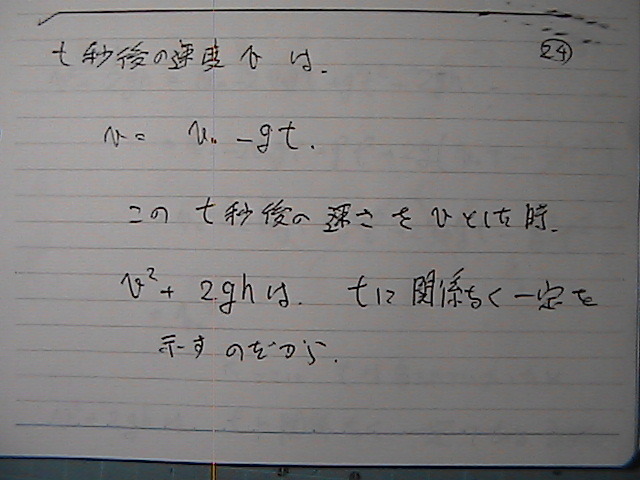 t秒後の速度vは、
㉔
v = v₀ - gt.
この t秒後の速さをvとした時、
v² + 2ghは、 tに関係なく一定を
示すのだから、